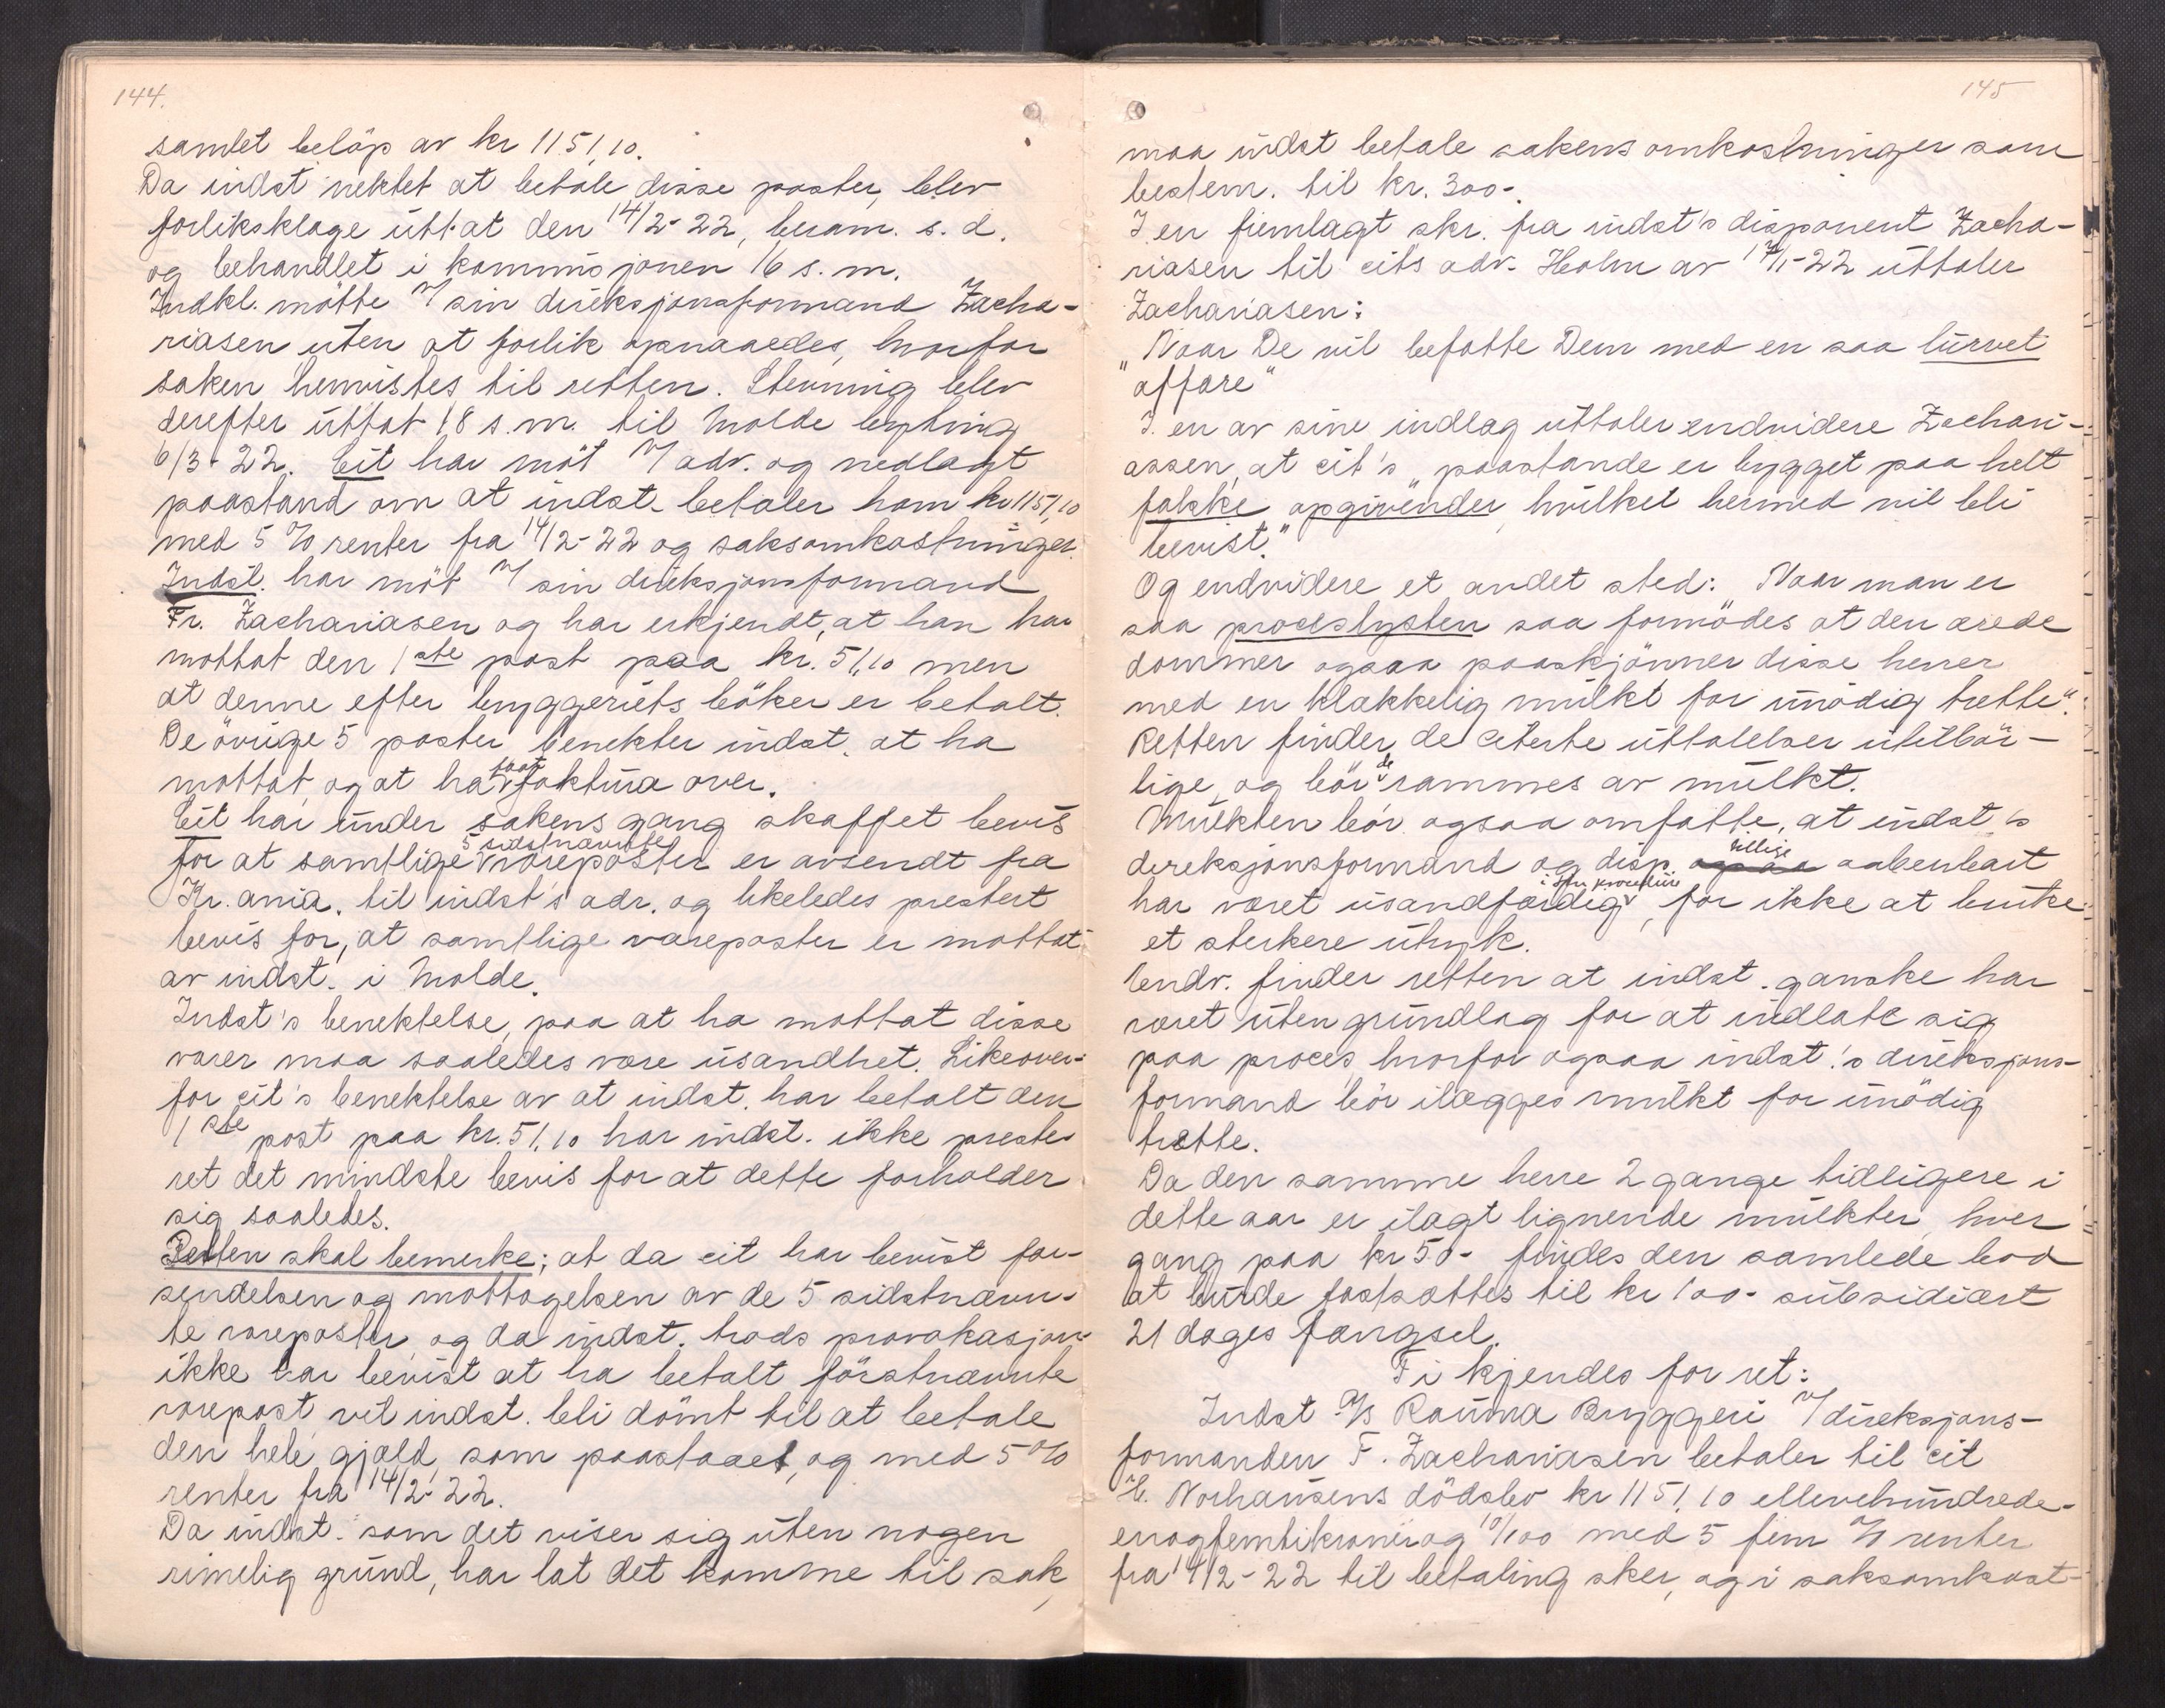 144.
samlet belöp av kr 1151,10.
Da indst nektet at betale disse poster, blev
forliksklage uttat den 14/2-22, beram. s. d.
og behandlet i kommisjonen 16 s. m.
Indkl. mötte v/ sin direksjonsformand Zacha-
riasen uten at forlik opnaaedes, hvorfor
saken henvistes til retten. Stevning blev
derefter uttat 18 s. m. til Molde byting
6/3-22. Cit har möt v/ adv. og nedlagt
paastand om at indst. betaler ham kr 1151,10
med 5 % renter fra 14/2-22 og saksomkostninger.
Indst. har möt v/ sin direksjonsformand
Fr. Zachariasen og har erkjendt, at han har
mottat den 1ste post paa kr. 51,10 men
at denne efter bryggeriets böker er betalt.
De övrige 5 poster benekter indst. at ha
mottat og at ha faat faktura over.
Cit har under sakens gang skaffet bevis
for at samtlige 5 sidstnævnte vareposter er avsendt fra
Kr.ania. til indst's adr. og likeledes prestert
bevis for, at samtlige vareposter er mottat
av indst. i Molde.
Indst's benektelse, paa at ha mottat disse
varer maa saaledes være usandhet. Likeover-
for cit's benektelse av at indst. har betalt den
1ste post paa kr. 51,10 har indst. ikke preste-
ret det mindste bevis for at dette forholder
sig saaledes.
Retten skal bemerke; at da cit har bevist for-
sendelsen og mottagelsen av de 5 sidstnævn-
te vareposter og da indst. trods provokasjon
ikke har bevist at ha betalt förstnævnte
varepost vil indst. bli dömt til at betale
den hele gjæld som paastaaet, og med 5 %
renter fra 14/2-22.
Da indst. som det viser sig uten nogen
rimelig grund, har lat det komme til sak,
145
maa indst betale sakens omkostninger som
bestem. til kr. 300-.
I en fremlagt skr. fra indst's disponent Zacha-
riasen til cits adv. Holm av uttaler
Zachariasen:
"Naar De vil befatte Dem med en saa lurvet
"affære"
I en av sine indlæg uttaler endvidere Zachari-
assen, at cit's "paastande er bygget paa helt
falske opgivender hvilket hermed vil bli
bevist."
Og endvidere et andet sted: "Naar man er
saa procslysten saa formödes at den ærede
dommer ogsaa paaskjönner disse herrer
med en klækkelig mulkt for unödig trette".
Retten finder de citerte uttalelser utilbör-
lige, og bör de rammes av mulkt.
Mulkten bör ogsaa omfatte, at indst's
direksjonsformand og disp. ogsaa tillige aabenbart
har været usandfærdig i sin procedure, for ikke at bruke
et sterkere utryk.
Endv. finder retten at indst. ganske har
været uten grundlag for at indlate sig
paa proces, hvorfor ogsaa indst.'s direksjons-
formand bör ilægges mulkt for unödig
trætte.
Da den samme herre 2 gange tidligere i
dette aar er ilagt lignende mulkter hver
gang paa kr 50- findes den samlede bod
at burde fastsættes til kr 100- subsidiært
21 dages fængsel.
Ti kjendes for ret:
Indst A/s Rauma Bryggeri v/ direksjons-
formanden F. Zachariasen betaler til cit
Norhausens dödsbo kr 1151,10 ellevehundrede-
enogfemtikroner og 10/100 med 5 fem % renter
fra 14/2-22 til betaling sker, og i saksomkost-